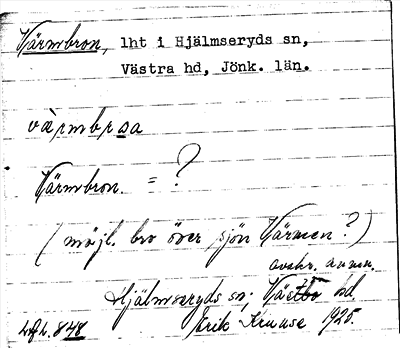 Värmbron, lht i Hjälmseryds sn,
Västra hd, Jönk. län.
värmbrọa
Värmbron. = ?
(möjl. bro över sjön Värmen?)
avskr. anm.
Hjälmseryds sn; Västbo hd.
Erik Kruuse 1925.